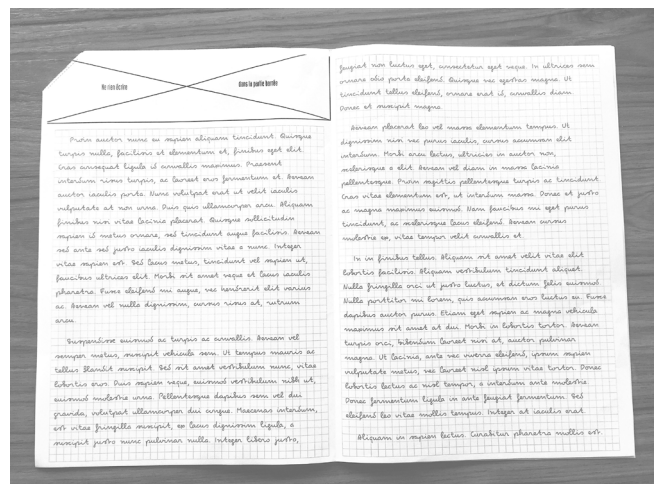 Ne rien écrire dans la partie barrée
Proin auctor nunc eu sapien aliquam tincidunt. Quisque
turpis nulla, facilisis et elementum et, finibus eget elit.
Cras consequat ligula id convallis maximus. Praesent
interdum risus turpis, ac laoreet eros fermentum et. Aenean
auctor iaculis porta. Nunc volutpat erat ut velit iaculis
vulputate at non urna. Duis quis ullamcorper arcu. Aliquam
finibus nisi vitae lacinia placerat. Quisque sollicitudin
sapien id metus ornare, sed tincidunt augue facilisis. Aenean
sed ante sed justo iaculis dignissim vitae a nunc. Integer
vitae sapien est. Sed lacus metus, tincidunt vel sapien ut,
faucibus ultrices elit. Morbi sit amet neque et lacus iaculis
pharetra. Fusce eleifend mi augue, nec hendrerit elit varius
ac. Aenean vel nulla dignissim, cursus risus at, rutrum
arcu.
Suspendisse euismod ac turpis ac convallis. Aenean vel
semper metus, suscipit vehicula sem. Ut tempus mauris ac
tellus blandit suscipit. Sed sit amet vestibulum nunc, vitae
lobortis eros. Duis sapien neque, euismod vestibulum nibh ut,
euismod molestie urna. Pellentesque dapibus sem vel dui
gravida, volutpat ullamcorper dui congue. Maecenas interdum,
est vitae fringilla suscipit, ex lacus dignissim ligula, a
suscipit justo nunc pulvinar nulla. Integer libero justo,
feugiat non luctus eget, consectetur eget neque. In ultrices sem
ornare odio porta eleifend. Quisque nec egestas magna. Ut
tincidunt tellus eleifend, ornare erat id, convallis diam.
Donec et suscipit magna.
Aenean placerat leo vel massa elementum tempus. Ut
dignissim nisi nec purus iaculis, cursus accumsan elit
interdum. Morbi arcu lectus, ultricies in auctor non,
scelerisque a elit. Aenean vel diam in massa lacinia
pellentesque. Proin sagittis pellentesque turpis ac tincidunt.
Cras vitae elementum est, ut interdum massa. Donec et justo
ac magna maximus euismod. Nam faucibus mi eget purus
tincidunt, ac scelerisque lacus eleifend. Aenean cursus
molestie ex, vitae tempor velit convallis et.
In in finibus tellus. Aliquam sit amet velit vitae elit
lobortis facilisis. Aliquam vestibulum tincidunt aliquet.
Nulla fringilla orci ut justo luctus, et dictum felis euismod.
Nulla porttitor mi lorem, quis accumsan eros luctus eu. Fusce
dapibus auctor purus. Etiam eget sapien ac magna vehicula
maximus sit amet at dui. Morbi in lobortis tortor. Aenean
turpis orci, bibendum laoreet nisi at, auctor pulvinar
magna. Ut lacinia, ante nec viverra eleifend, ipsum sapien
vulputate metus, nec laoreet nisl ipsum vitae tortor. Donec
lobortis lectus ac nisl tempor, a interdum ante molestie.
Donec fermentum ligula in ante feugiat fermentum. Sed
eleifend leo vitae mollis tempus. Integer at iaculis erat.
Aliquam in sapien lectus. Curabitur pharetra mollis est